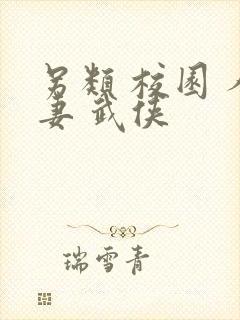 另類 校園
妻 武俠
瑞雪青